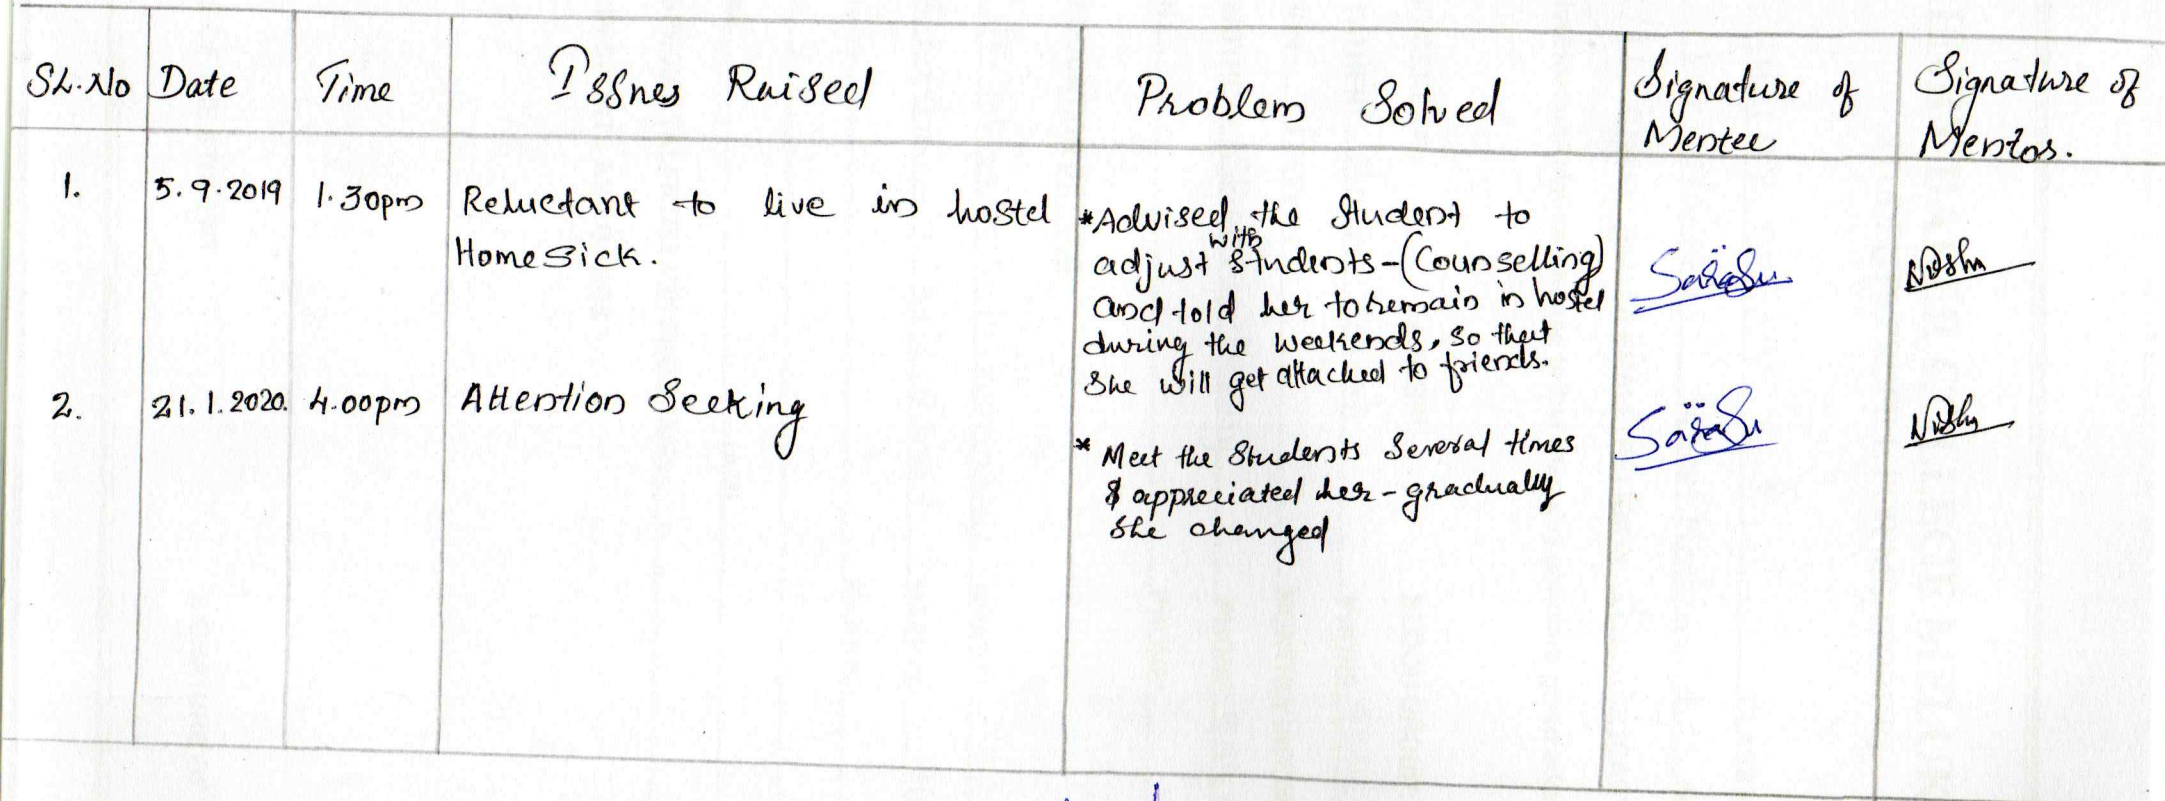 SL.No Date Time Issues Raised Problem Solved Signature of Mentee Signature of Mentor.
1. 5.9.2019 1.30pm Reluctant to live in hostel
Home sick.
*Advised the student to
adjust with students-(Counselling)
and told her to remain in hostel
during the weekends, so that
she will get attached to friends.
Sarasu
Nisha
2. 21.1.2020. 4.00pm Attention Seeking
* Meet the students several times
& appreciated her - gradually
she changed
Sarasu
Nisha